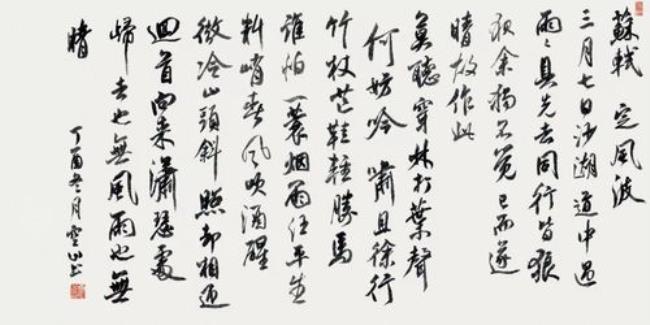 蘇軾 定風波
三月七日沙湖道中遇
雨〻具先去同行皆狼
狽余獨不覺已而遂
晴故作此
莫聽穿林打葉聲
何妨吟嘯且徐行
竹杖芒鞋輕勝馬
誰怕一蓑烟雨任平生
料峭春風吹酒醒
微冷山頭斜照却相迎
迴首向来瀟瑟處
歸去也無風雨也無
晴
丁酉冬月